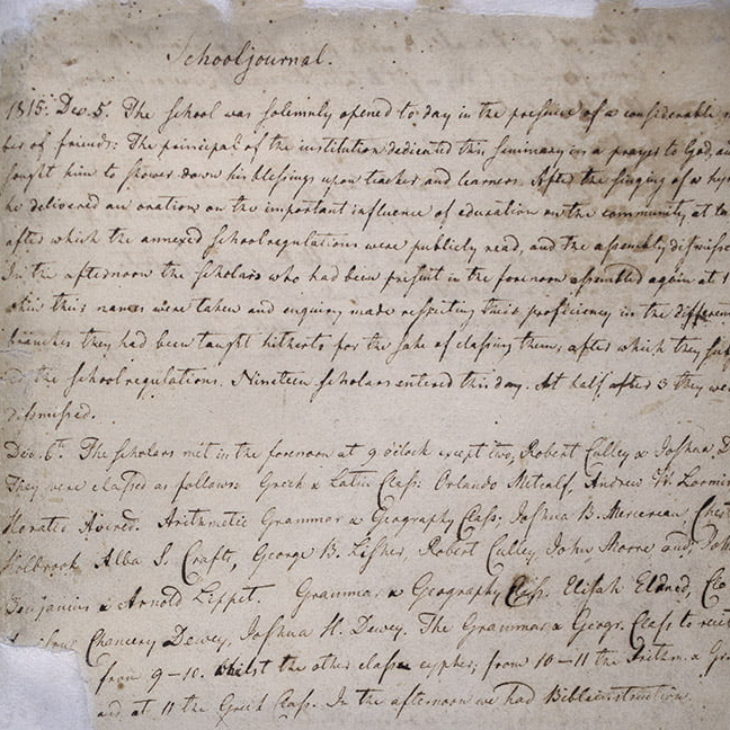 Schooljournal.
1815. Dec. 5. The School was solemnly opened to day in the presence of a considerable
ber of friends: The principal of the institution dedicated this seminary in a prayer to God, an
sought him to shower down his blessings upon teacher and learners. After the singing of a hy
he delivered an oration on the important influence of education on the community at la
after which the annexed Schoolregulations were publicly read, and the assembly dismisse
In the afternoon the scholars who had been present in the forenoon assembled again at 1
when their names were taken and enquiry made respecting their proficiency in the differen
branches they had been taught hitherto for the sake of classing them; after which they
the school regulations. Nineteen scholars entered this day. At half after 3 they we
dismissed.
Dec. 6th. The scholars met in the forenoon at 9 o'clock except two, Robert Culley & Joshua D
They were classed as follows: Greek & Latin Class: Orlando Metcalf, Andrew
Horatio Arithmetic Grammar & Geography Class; Joshua B. Mercereau, Chest
Holbrook, Alba S. Crafts, George B. Robert Culley, John Moore and
Benjamin & Arnold Lippet. Grammar & Geography Class. Elijah Eldred,
Chancery Dewey, Joshua H. Dewey. The Grammar & Geogr. Class to reci
from 9-10. whilst the other classe cypher; from 10-11 the Arithm. & Gr
and at 11 the Greek Class. In the afternoon we had Bibleinstruction.